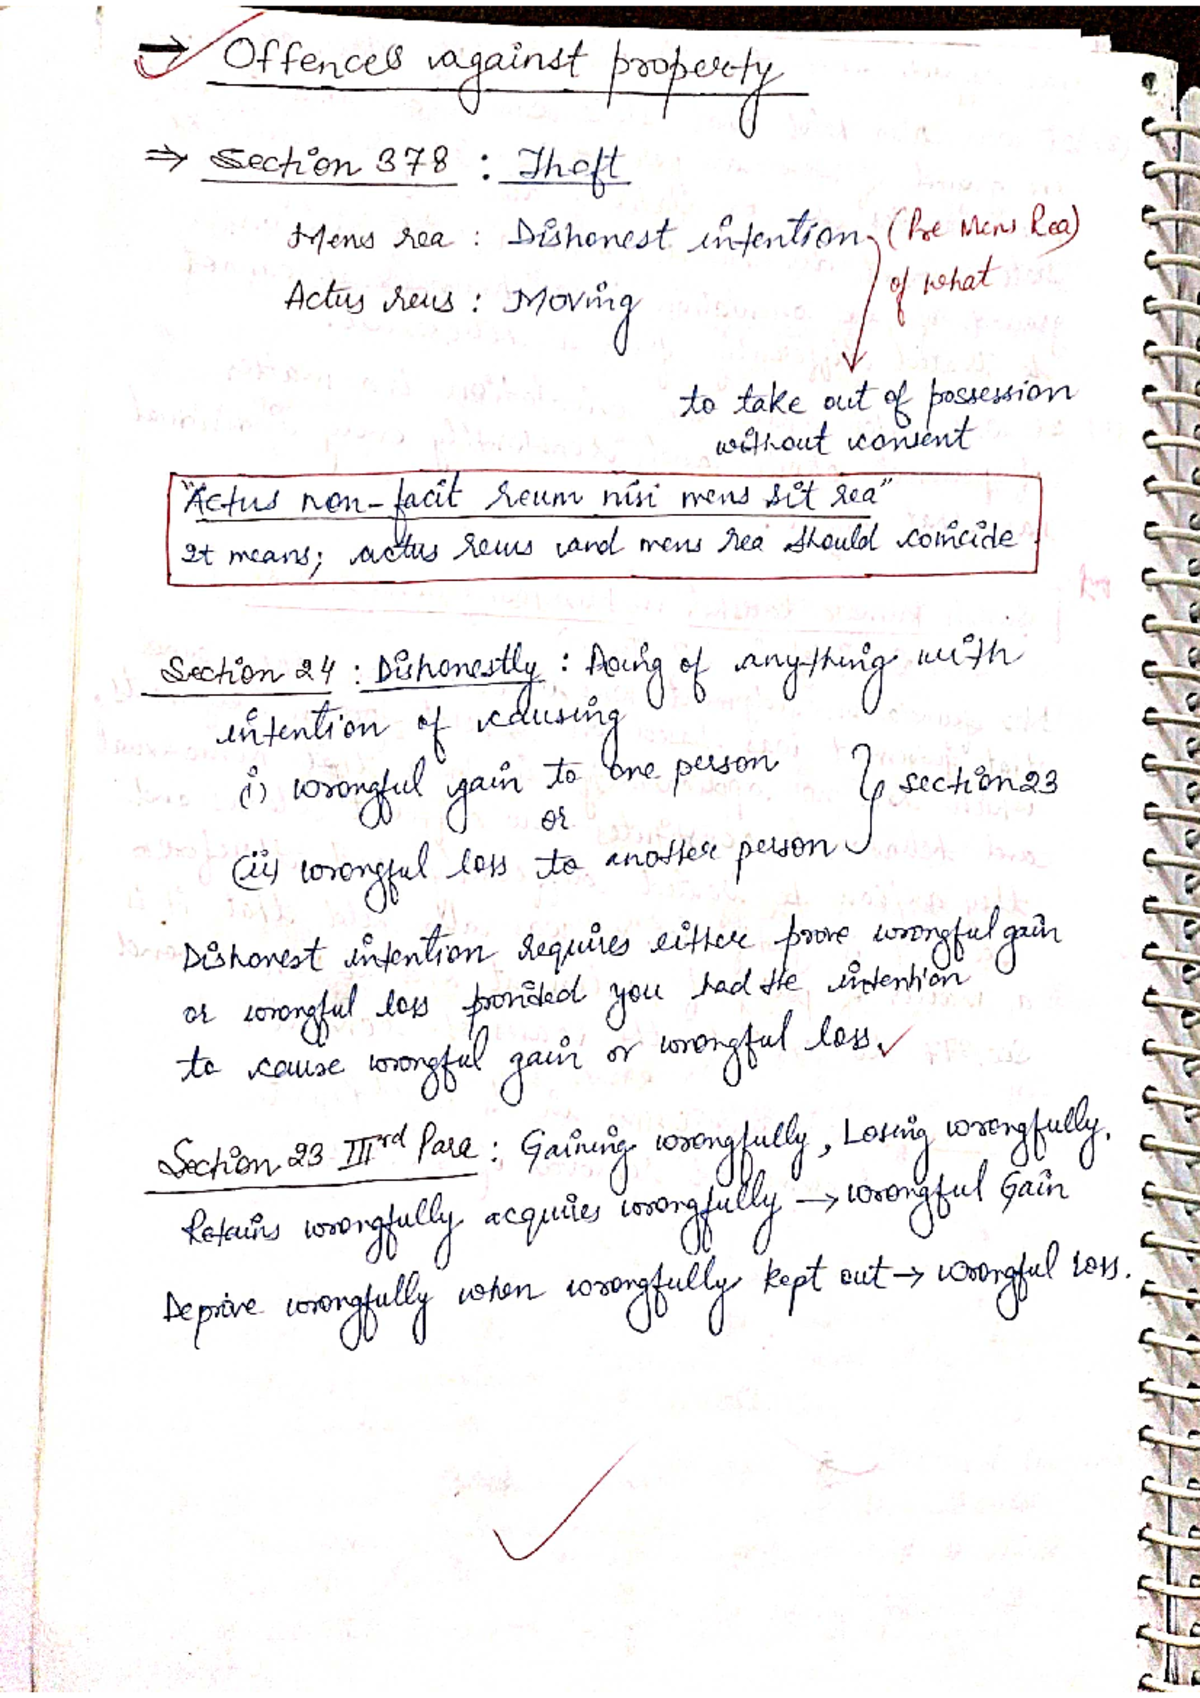 → Offences against property
⇒ Section 378 : Theft
Mens rea : Dishonest intention (Pre Mens Rea)
of what
Actus reus : Moving
to take out of possession
without consent
"Actus non-facit reum nisi mens sit rea"
It means; actus reus and mens rea should coincide
Section 24 : Dishonestly : Doing of anything with
intention of causing
(i) wrongful gain to one person
or
(ii) wrongful loss to another person
} section 23
Dishonest intention requires either prove wrongful gain
or wrongful loss provided you had the intention
to cause wrongful gain or wrongful loss.
Section 23 IIIrd Para : Gaining wrongfully, Losing wrongfully.
Retains wrongfully acquires wrongfully → wrongful Gain
Deprive wrongfully when wrongfully kept out → wrongful loss.